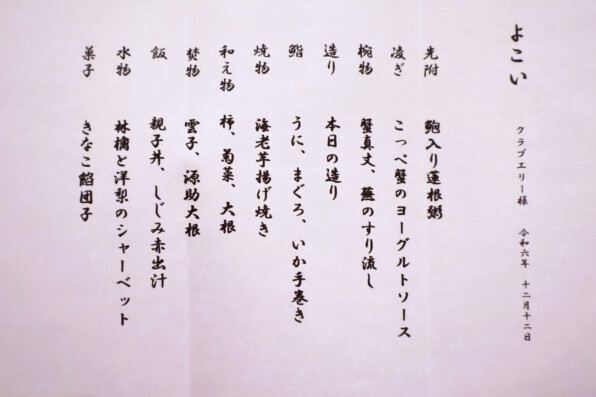 よこい
クラブエリー様　令和六年　十二月十二日
先附　鮑入り蓮根粥
凌ぎ　こっぺ蟹のヨーグルトソース
椀物　蟹真丈、蕪のすり流し
造り　本日の造り
鮨　うに、まぐろ、いか手巻き
焼物　海老芋揚げ焼き
和え物　柿、菊菜、大根
焚物　雲子、源助大根
飯　親子丼、しじみ赤出汁
水物　林檎と洋梨のシャーベット
菓子　きなこ餡団子